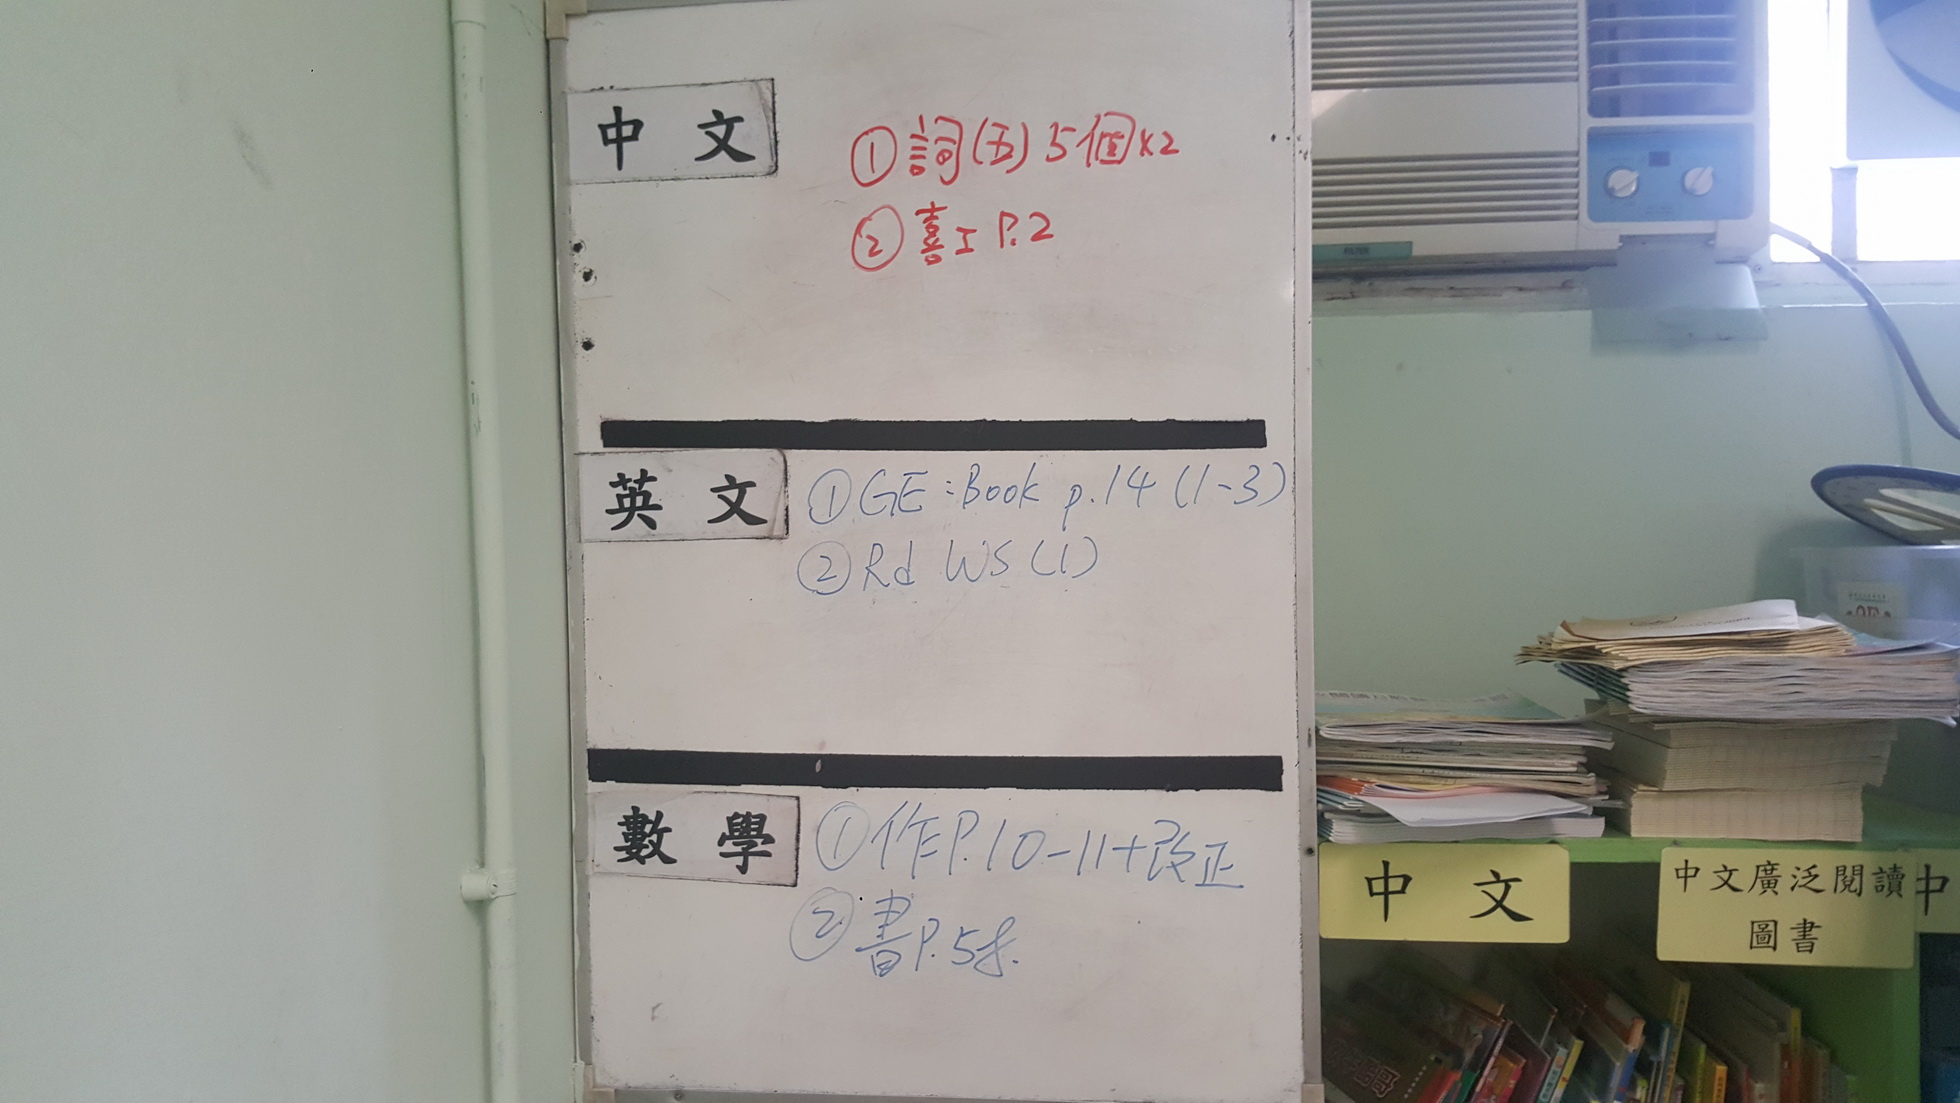 中文
①詞(五)5個x2
②喜工P.2
英文
①GE:Book p.14(1-3)
②Rd WS(1)
數學
①作P.10-11+改正
②書P.58.
FILTER
中文
中文廣泛閱讀
圖書
中